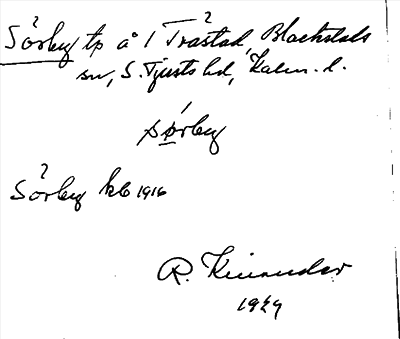 Sörby tp å 1 Tråstad, Blackstads
sn, S. Tjusts hd, Kalm. l.
sǿrby
Sörby kb 1916
R. Kinander
1929